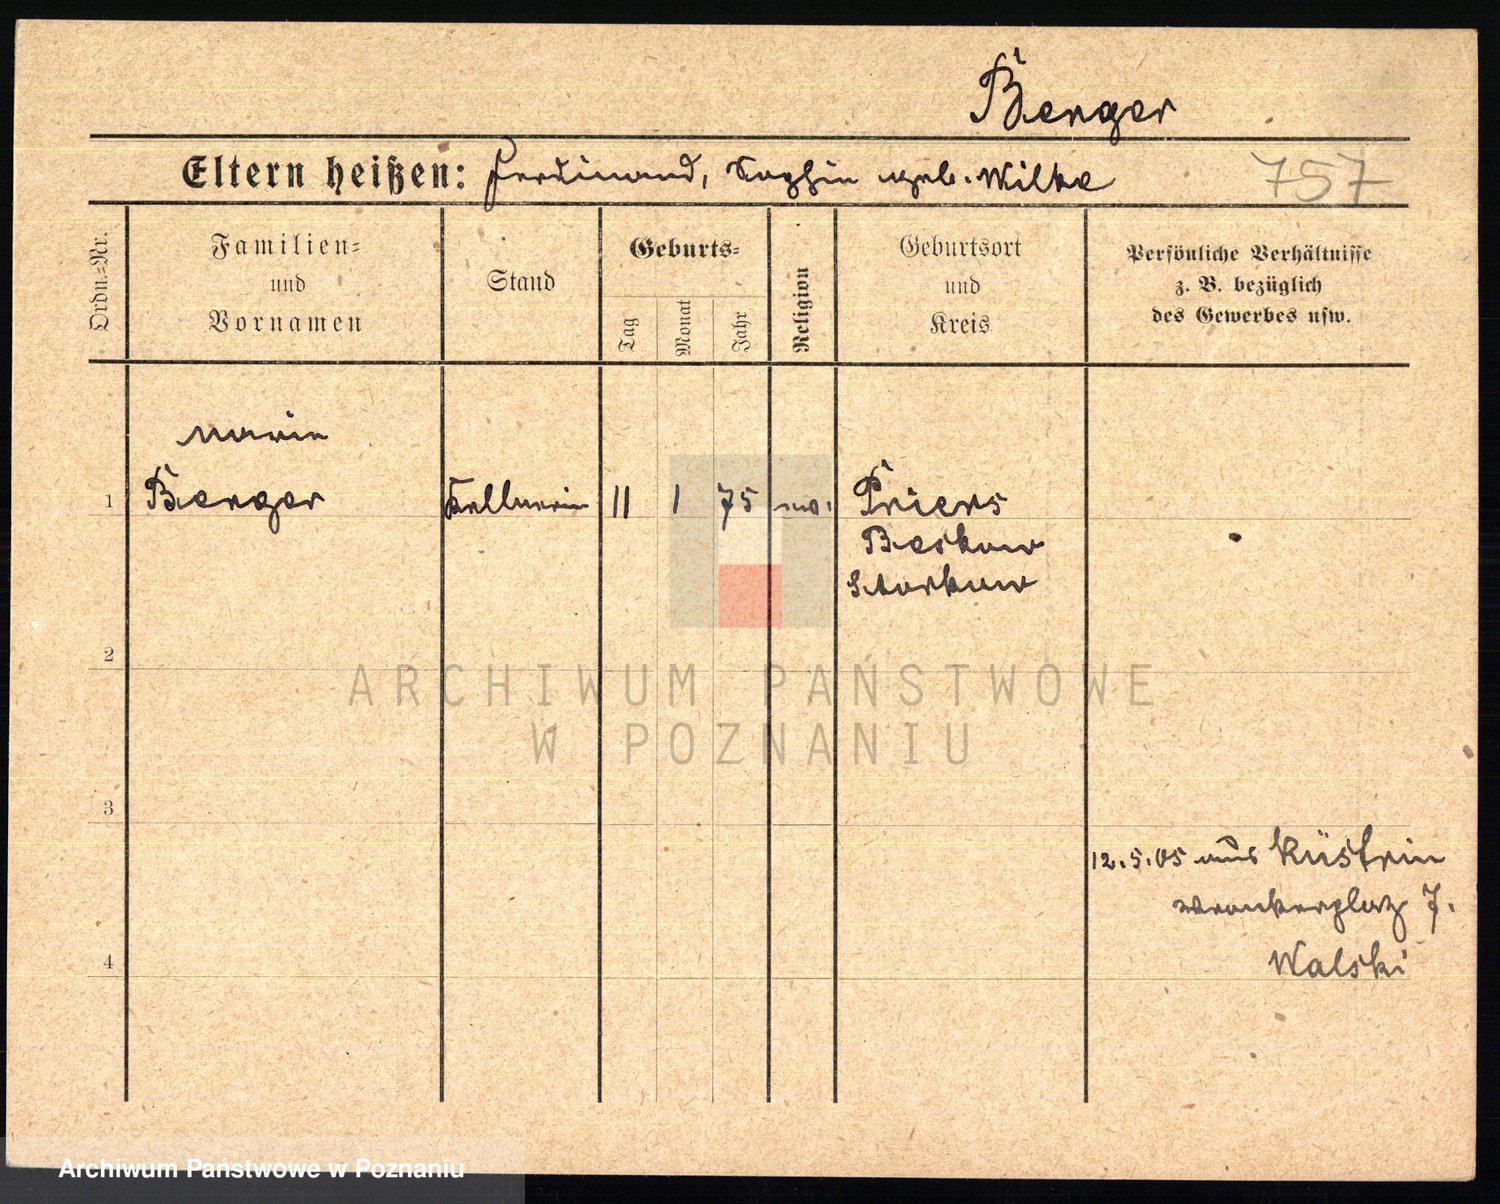 Berger
Eltern heißen: Ferdinand, Sophie geb. Wilke 757
Ordn.-Nr.
Familien- und Vornamen
Stand
Geburts-
Tag
Monat
Jahr
Religion
Geburtsort und Kreis
Persönliche Verhältnisse z. B. bezüglich des Gewerbes usw.
Marie
1 Berger Kellnerin 11 1 75 ev. Briers
Beskow
Storkow
2
3
12.5.05 aus Küstrin
Wronkerplatz 7.
4 Walski
ARCHIWUM PAŃSTWOWE
W POZNANIU
Archiwum Państwowe w Poznaniu